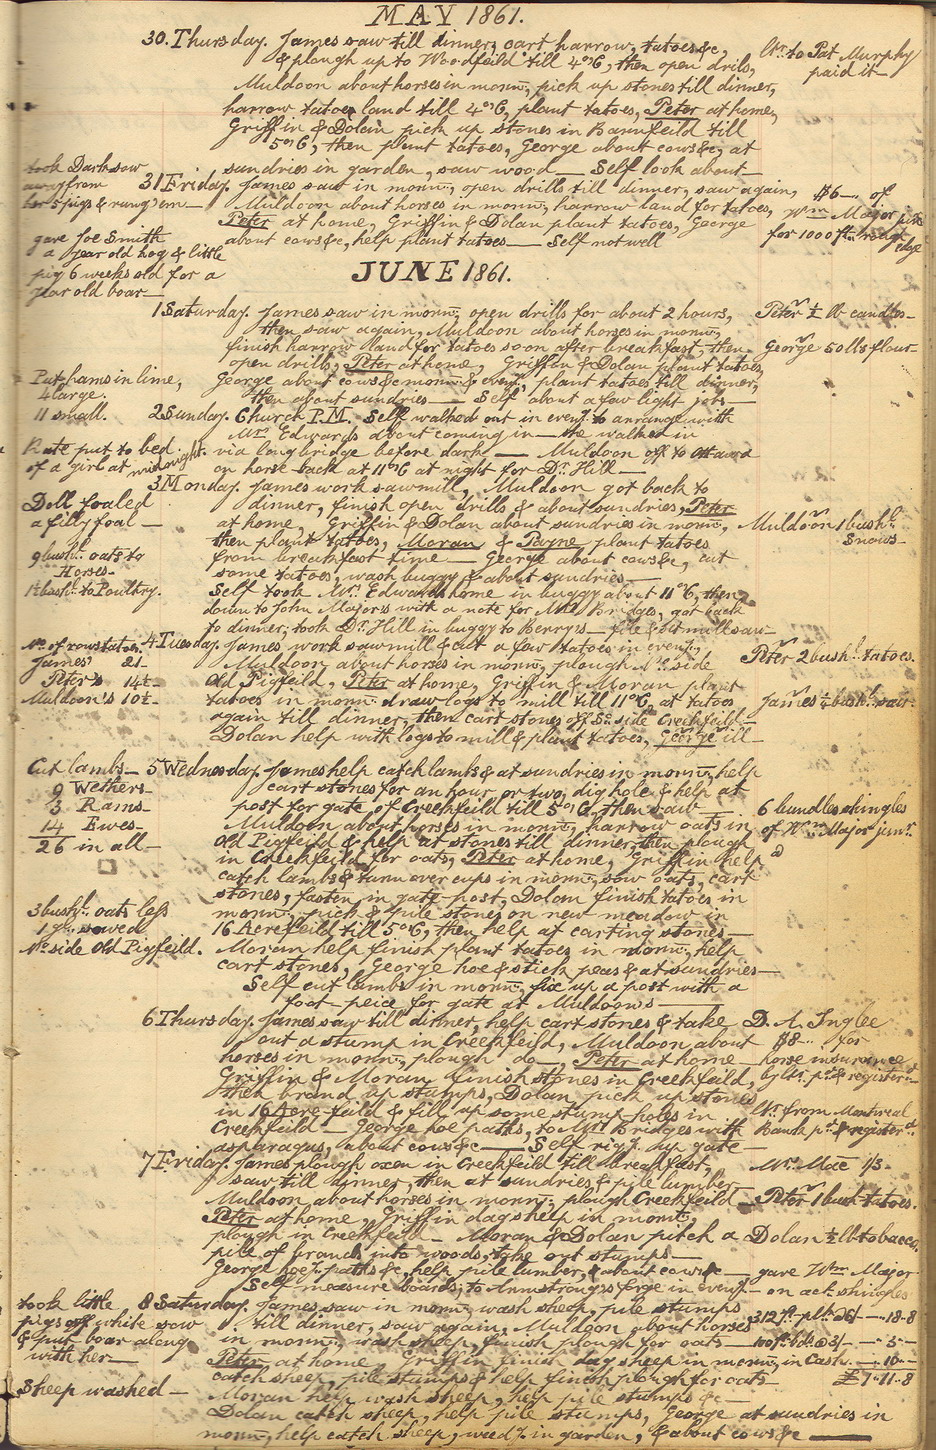 MAY 1861.
30. Thursday. James saw till dinner, cart harrow, tatoes &c,
& plough up to Woodfeild till 4 o'C, then open drils,
Muldoon about horses in mornḡ, pick up stones till dinner,
harrow tatoe land till 4 o'C, plant tatoes, Peter at home,
Griffin & Dolan pick up stones in Barnfeild till
5 o'C, then plant tatoes, George about cows &c, at
sundries in garden, saw wood — Self look about —
Ltr. to Pat Murphy
paid it —
took Dark sow
away from
her 5 pigs & rung 'em —
31 Friday. James saw in mornḡ, open drills till dinner, saw again,
Muldoon about horses in mornḡ, harrow land for tatoes,
Peter at home, Griffin & Dolan plant tatoes, George
about cows &c, help plant tatoes — Self not well
$6 — of
Wm. Major
for 1000 ft. rough
edge
gave Joe Smith
a year old hog & little
pig 6 weeks old for a
year old boar —
JUNE 1861.
1 Saturday. James saw in mornḡ, open drills for about 2 hours,
then saw again, Muldoon about horses in mornḡ,
finish harrow land for tatoes soon after breakfast, then
open drills, Peter at home, Griffin & Dolan plant tatoes,
George about cows &c mornḡ & eveng, plant tatoes till dinner,
then about sundries — Self about a few light jobs —
Peter ½ lb candles —
George 50 lbs flour —
Put hams in lime,
4 large.
11 small.
2 Sunday. Church P.M. Self walked out in eveng. to arrange with
Mr. Edwards about coming in — He walked in
via long bridge before dark — Muldoon off to Ottawa
on horse back at 11 o'C at night for Dr. Hill —
Kate put to bed
of a girl at midnight.
3 Monday. James work sawmill, Muldoon got back to
dinner, finish open drills & about sundries, Peter
at home, Griffin & Dolan about sundries in mornḡ,
then plant tatoes, Moran & Payne plant tatoes
from breakfast time — George about cows &c, cut
some tatoes, wash buggy & about sundries —
Self took Mr. Edwards home in buggy about 11 o'C, then
down to John Major's with a note for Mrs Bridges, got back
to dinner, took Dr. Hill in buggy to Berry's — file & set mill saw —
Doll foaled
a filly foal —
9 bushl. oats to
Horses —
1½ bushl. to Poultry.
Muldoon 1 bushl.
Snows —
4 Tuesday. James work sawmill & cut a few tatoes in eveng,
Muldoon about horses in mornḡ, plough No. side
Old Pigfeild, Peter at home, Griffin & Moran plant
tatoes in mornḡ draw logs to mill till 11 o'C, at tatoes
again till dinner, then cart stones off So. side Creekfeild —
Dolan help with logs to mill & plant tatoes, George ill —
No. of rows tatoes,
James' 21 —
Peter's 14½ —
Muldoon's 10½ —
Peter 2 bushl. tatoes.
James ¼ bushl. salt.
5 Wednesday. James help catch lambs & at sundries in mornḡ, help
cart stones for an hour or two, dig hole & help at
post for gate of Creekfeild till 5 o'C, then saw —
Muldoon about horses in mornḡ, harrow oats in
Old Pigfeild & help at stones till dinner, then plough
in Creekfeild for oats, Peter at home, Griffin help
catch lambs & turn over cups in mornḡ, sow oats, cart
stones, fasten in gate-post, Dolan finish tatoes in
mornḡ, pick & pile stones on new meadow in
16 Acrefeild till 5 o'C, then help at carting stones —
Moran help finish plant tatoes in mornḡ, help
cart stones, George hoe & stick peas & at sundries —
Self cut lambs in mornḡ, fix up a post with a
foot-peice for gate at Muldoon's —
Cut lambs —
9 Wethers
3 Rams
14 Ewes —
26 in all —
6 bundles shingles
of Wm. Major junr.
3 bushl. oats less
1 qr. sowed
No. side Old Pigfeild.
6 Thursday. James saw till dinner, help cart stones & take
out a stump in Creekfeild, Muldoon about
horses in mornḡ, plough do —, Peter at home —
Griffin & Moran finish stones in Creekfeild,
then brand up stumps, Dolan pick up stones
in 16 Acre feild & fill up some stump holes in
Creekfeild — George hoe paths, to Mrs Bridges with
asparagus, about cows &c — Self rig'g. up gate —
D. A. Inglee
$8 .. for
horse insurance
by ltr. pd. & registerd.
Ltr. from Montreal
Bank pd. & registerd.
7 Friday. James plough oxen in Creekfeild till breakfast,
saw till dinner, then at sundries & pile lumber
Muldoon about horses in mornḡ, plough Creekfeild —
Peter at home, Griffin dags help in mornḡ,
plough in Creekfeild — Moran & Dolan pitch a
pile of brands into woods, take out stumps —
George hoeg. paths &c, help pile lumber, & about cows &c —
Self measure boards, to Armstrong's forge in eveng —
Mr. Mac 1/3 —
Peter 1 bush. tatoes.
Dolan ½ lb tobacco,
gave Wm. Major
on act. shingles
8 Saturday. James saw in mornḡ, wash sheep, pile stumps
till dinner, saw again, Muldoon about horses
in mornḡ, wash sheep, finish plough for oats —
Peter at home, Griffin finish dag sheep in mornḡ,
catch sheep, pile stumps & help finish plough for oats —
Moran help wash sheep, help pile stumps &c —
Dolan catch sheep, help pile stumps, George at sundries in
mornḡ, help catch sheep, weedg. in garden, & about cows &c —
took little
pigs off white sow
& put boar along
with her —
Sheep washed —
312 ft. plk @ 6/ — .. 18 .. 8
in Cash — .. 10 .. —
£ 7 .. 11 .. 8